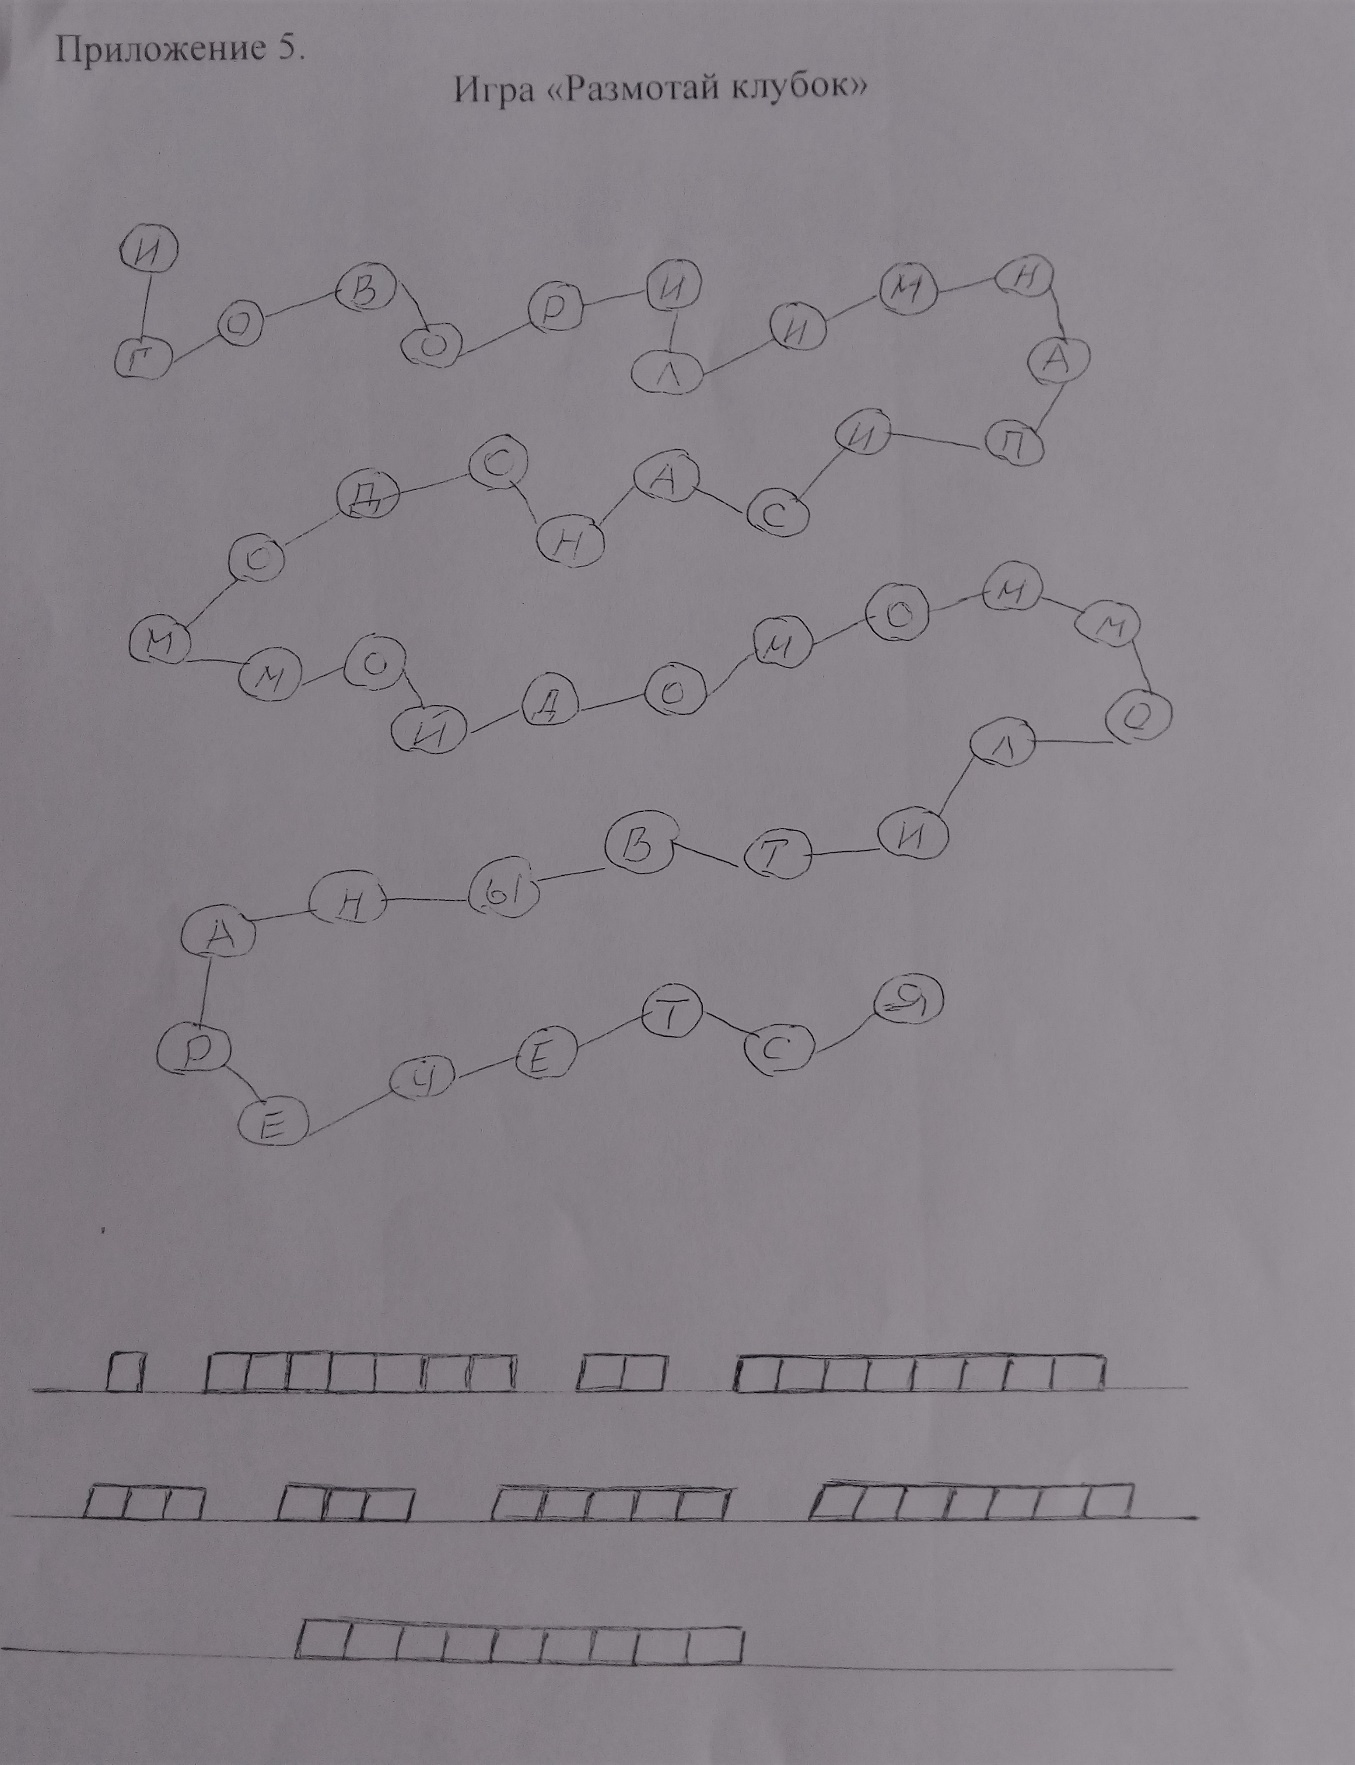 Приложение 5.
Игра «Размотай клубок»
И Г О В О Р И Л И М Н А
П И С А Н О Д О М
М О Й Д О М О М М О
Л И Т В Ы Н А
Р Е Ч Е Т С Я